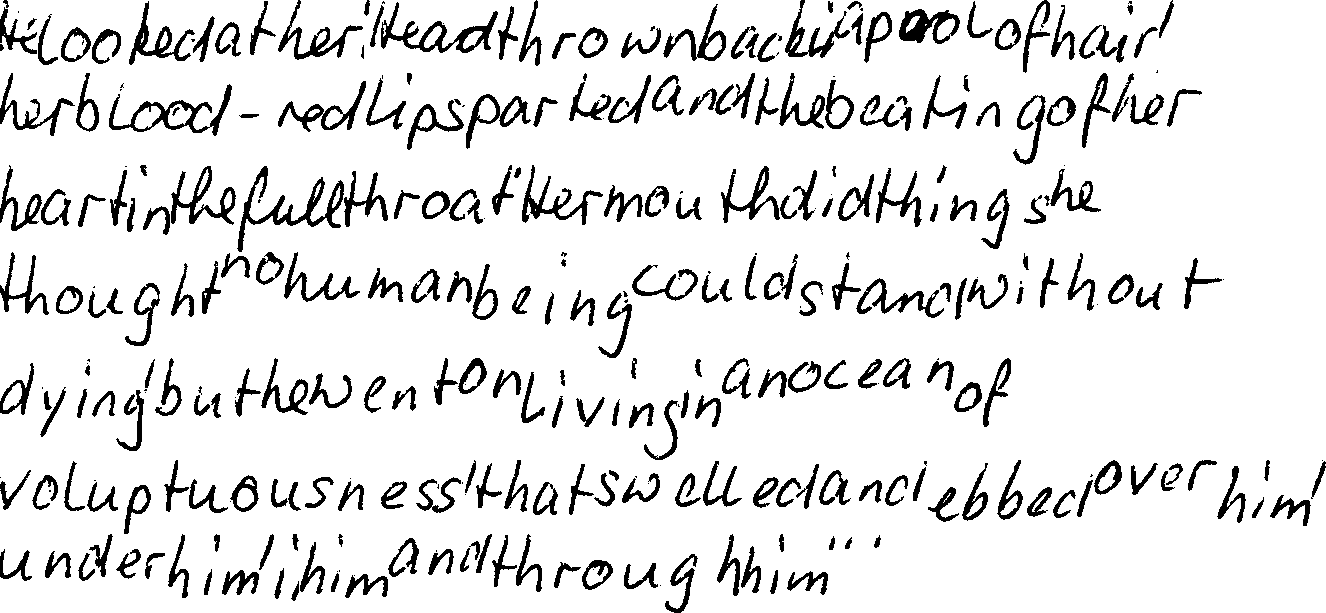 He looked at her, Head thrown back in a pool of hair,
her blood-red lips parted and the beating of her
heart in the full throat. Her mouth did things he
thought no human being could stand without
dying, but he went on living in an ocean of
voluptuousness, that swelled and ebbed over him,
under him, i, him and through him...